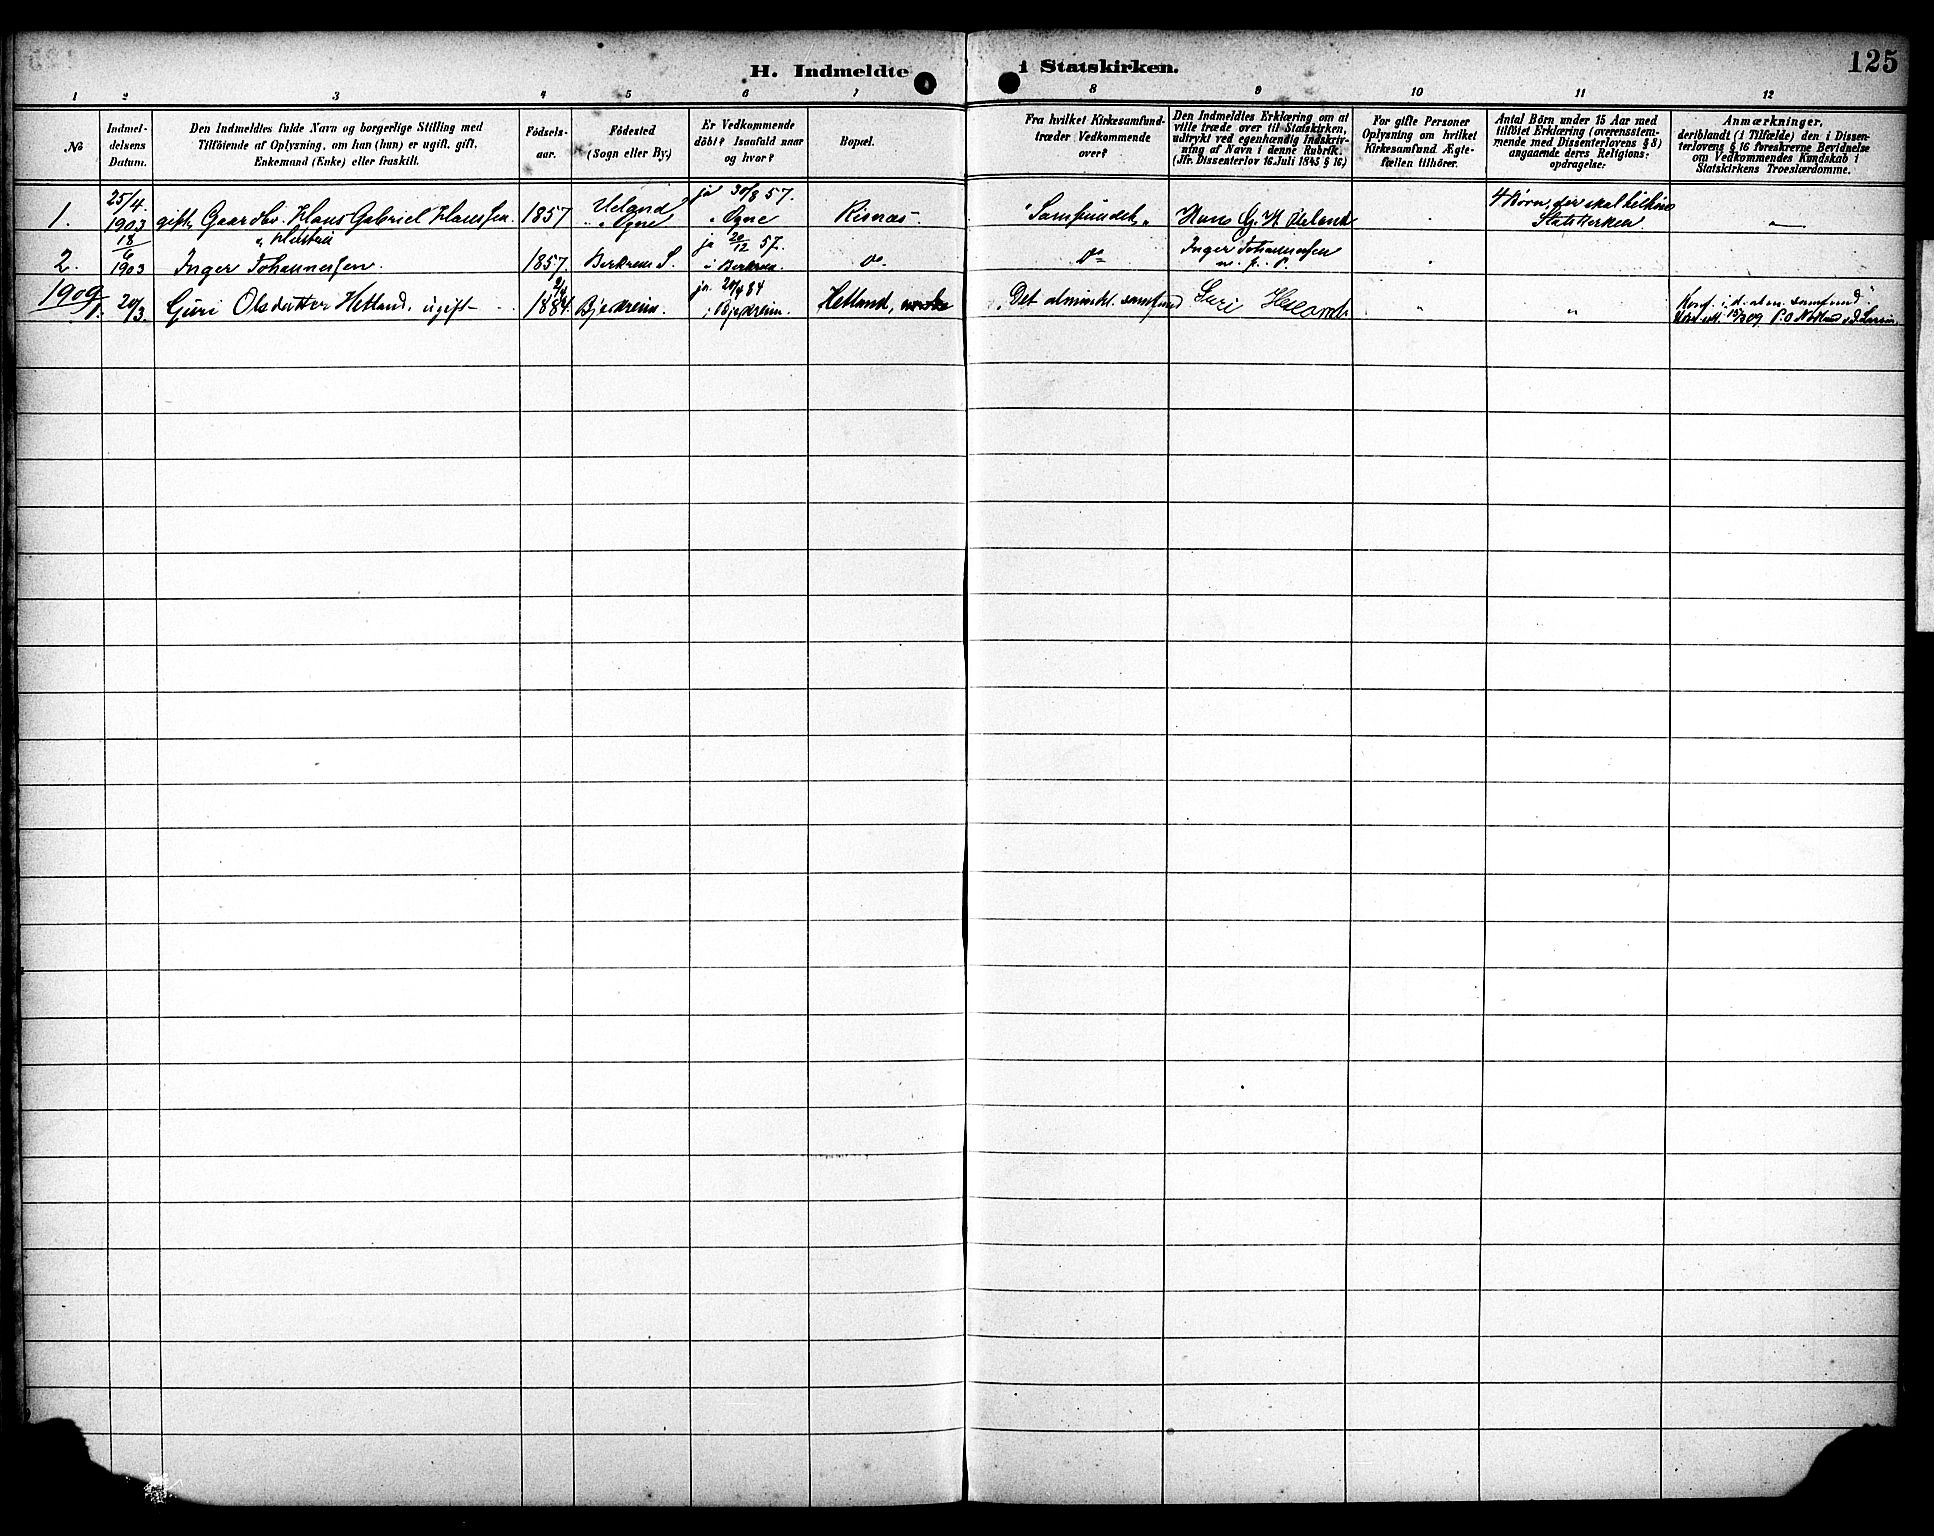 H. Indmeldte i Statskirken.
125
1 2 3 4 5 6 7 8 9 10 11 12
No
Indmel-
delsens
Datum.
Den Indmeldtes fulde Navn og borgerlige Stilling med
Tilföiende af Oplysning, om han (hun) er ugift, gift,
Enkemand (Enke) eller fraskilt.
Födsels-
aar.
Födested
(Sogn eller By.)
Er Vedkommende
döbt? Isaafald naar
og hvor?
Bopæl.
Fra hvilket Kirkesamfund-
træder Vedkommende
over?
Den Indmeldtes Erklæring om at
ville træde over til Statskirken,
udtrykt ved egenhændig Indskriv-
ning af Navn i denne Rubrik.
(Jfr. Dissenterlov 16 Juli 1845 § 16.)
For gifte Personer
Oplysning om hvilket
Kirkesamfund Ægte-
fællen tilhörer.
Antal Börn under 15 Aar med
tilföiet Erklæring (overensstem-
mende med Dissenterlovens § 8)
angaaende deres Religions-
opdragelse:
Anmærkninger,
deriblandt (i Tilfælde) den i Dissen-
terlovens § 16 foreskrevne Bevidnelse
om Vedkommendes Kundskab i
Statskirkens Troeslærdomme.
1.
25/4
1903
gift, Gaardbr. Hans Gabriel Hansen.
1857
Ueland
i Ogne
ja 30/8 57.
i Ogne
Risnæs
"Samfundet"
Hans G. H. Ueland
"
4 børn, der skal tilhøre
Statskirken
2.
18/6
1903
Inger Johannersen.
1857.
Berkrem S.
ja 20/12 57.
i Berkrem
do
do
Inger Johannersen
m. f. P.
"
1909
1.
20/3.
Guri Olsdatter Hetland, ugift
1884.
Bjerkreim.
ja. 84
i Bjerkreim.
Hetland,
Det almindel. samfund
Guri Hetland
"
"
Konf. i d. alm. samfund.
09 P. O. Netland